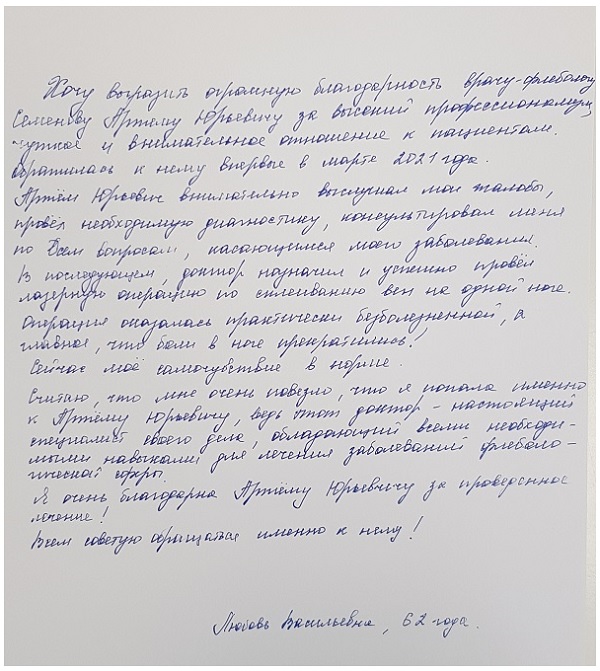 Хочу выразить огромную благодарность врачу-флебологу
Семенову Артёму Юрьевичу за высокий профессионализм,
чуткое и внимательное отношение к пациентам.
Обратилась к нему впервые в марте 2021 года.
Артём Юрьевич внимательно выслушал мои жалобы,
провёл необходимую диагностику, консультировал меня
по всем вопросам, касающимся моего заболевания.
В последующем, доктор назначил и успешно провёл
лазерную операцию по склеиванию вен на одной ноге.
Операция оказалась практически безболезненной, а
главное, что боли в ноге прекратились!
Сейчас моё самочувствие в норме.
Считаю, что мне очень повезло, что я попала именно
к Артёму Юрьевичу, ведь этот доктор - настоящий
специалист своего дела, обладающий всеми необходи-
мыми навыками для лечения заболеваний флеболо-
гической сферы.
Я очень благодарна Артёму Юрьевичу за проведенное
лечение!
Всем советую обращаться именно к нему!
Любовь Васильевна, 62 года.